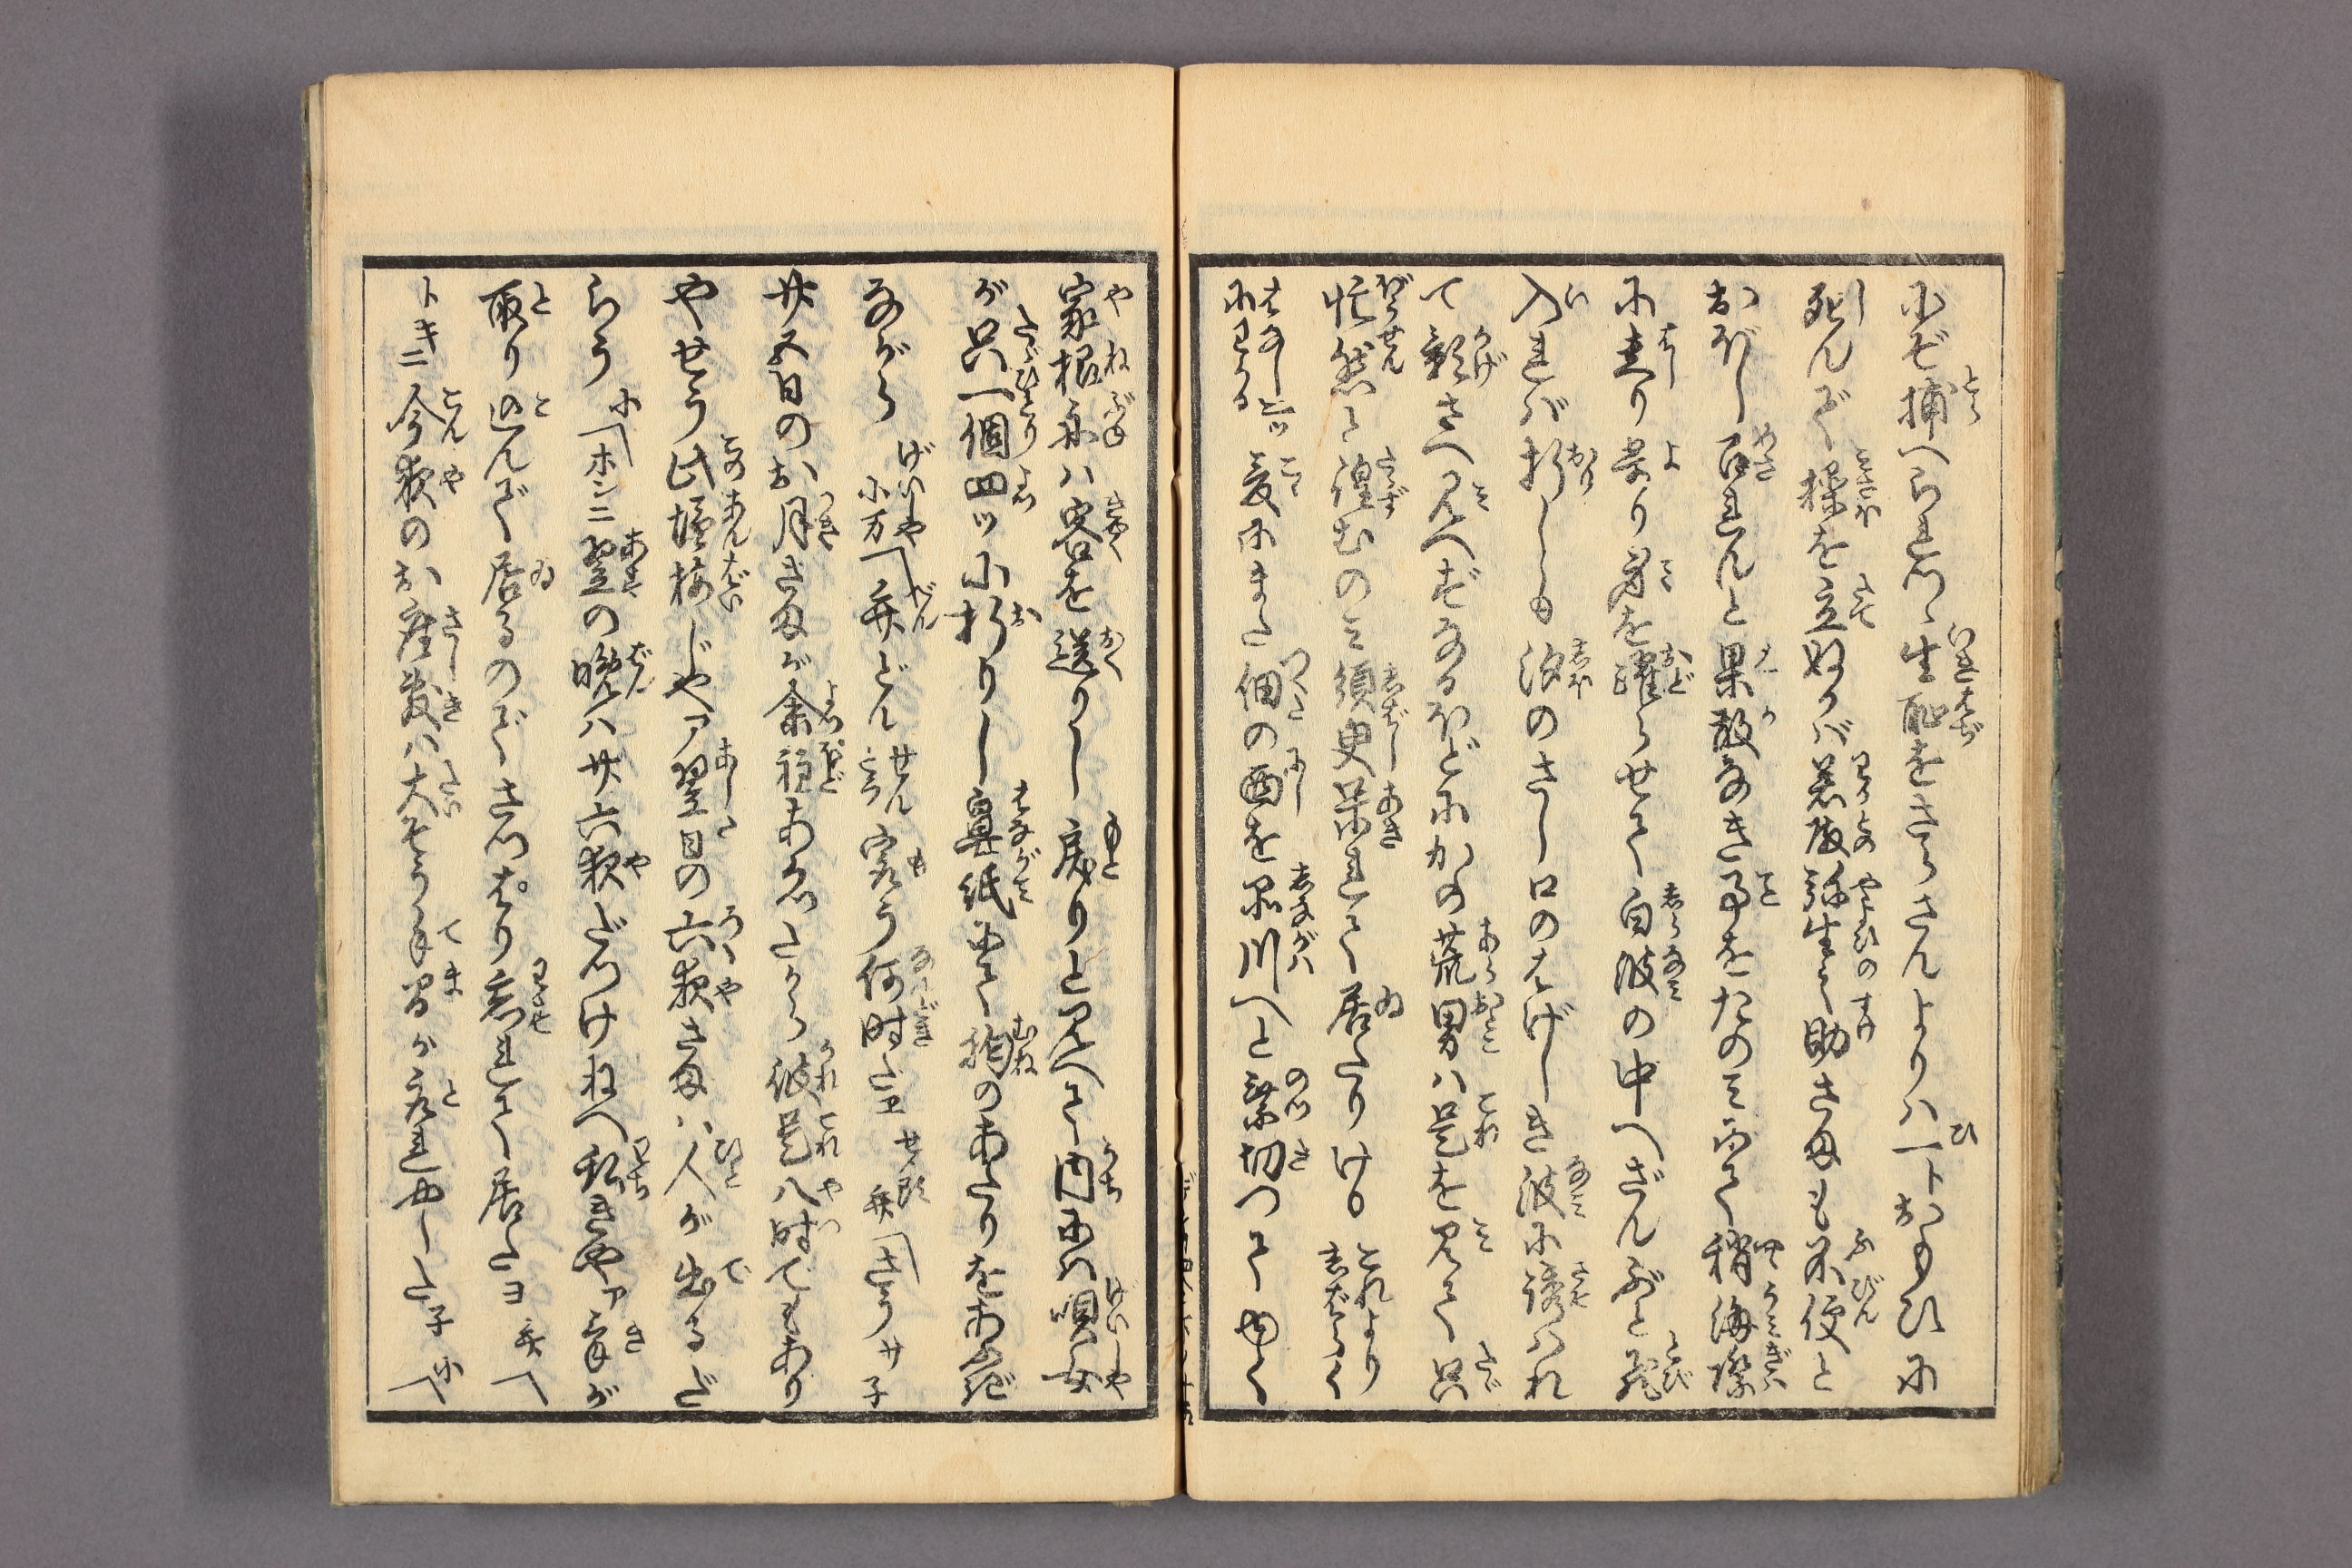 にぞ捕へられつゝ生恥をさらさんよりハ一トおもひに
死んで操を立ぬかバ若殿弥生之助さまも不便と
おぼし召れんと果敢なき事をたのミにて稍海際
に走り寄り身を躍らせて白波の中へざんぶと飛
入れバ折しも汐のさし口のはげしき波に誘ハれ
て影さへ見へずなるほどにかの荒男ハ是を見て只
忙然と惶むのミ須臾呆れて居たりけり これより志ばらく
はなし二ツにわかる 爰にまた佃の西を品川へと乗切つてゆく
家根舟ハ客を送りし戻りと見へて内にハ唄女
が只一個四ツに折りし鼻紙にて胸のあたりをあふぎ
ながら げいしや小万「弁どん せんどう 寔う何時だヱ せんどう弁「さうサ子
廿五日のお月さまが余程あがつたから彼是八時でもあり
やせう此塩梅じやア翌日の六夜さまハ人が出るだ
らう 小「ホンニ翌の晩ハ廿六夜だつけねへ私きやア気が
取り込んで居るのでさつぱり忘れて居たヨ 弁「
トキニ今夜のお座敷ハ大そう手間が取れやした子 小「